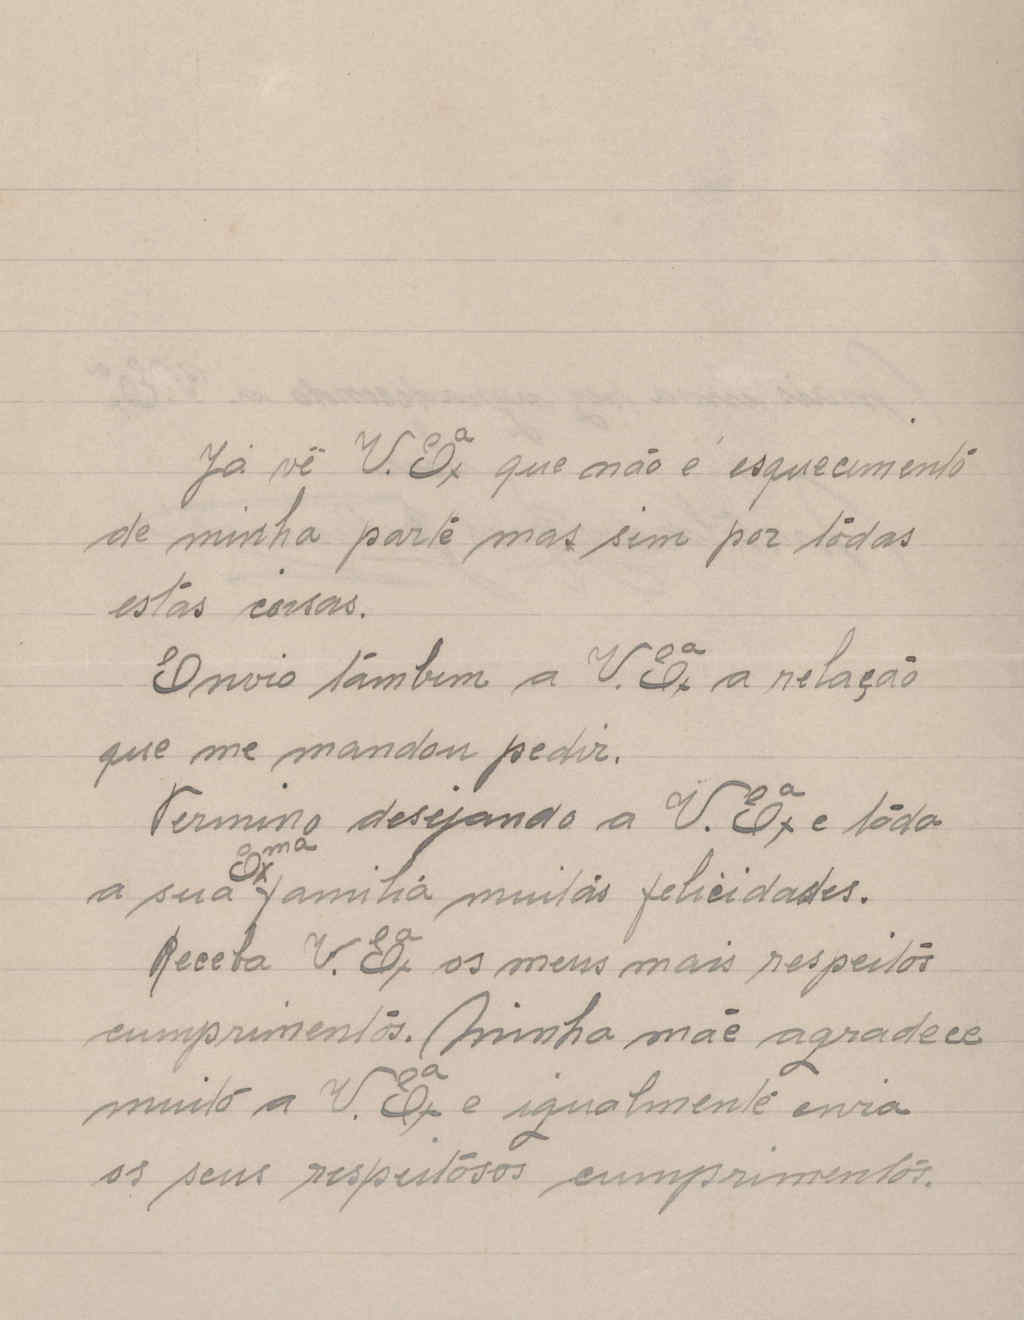 Já vê V. Exª que não é esquecimento
de minha parte mas sim por tôdas
estas coisas.
Envio tâmbem a V. Exª a relação
que me mandou pedir.
Termino desejando a V. Exª e tôda
a sua Exma familia muitas felicidades.
Receba V. Exª os meus mais respeitos
cumprimentos. Minha mãe agradece
muito a V. Exª e igualmente envia
os seus respeitosos cumprimentos.